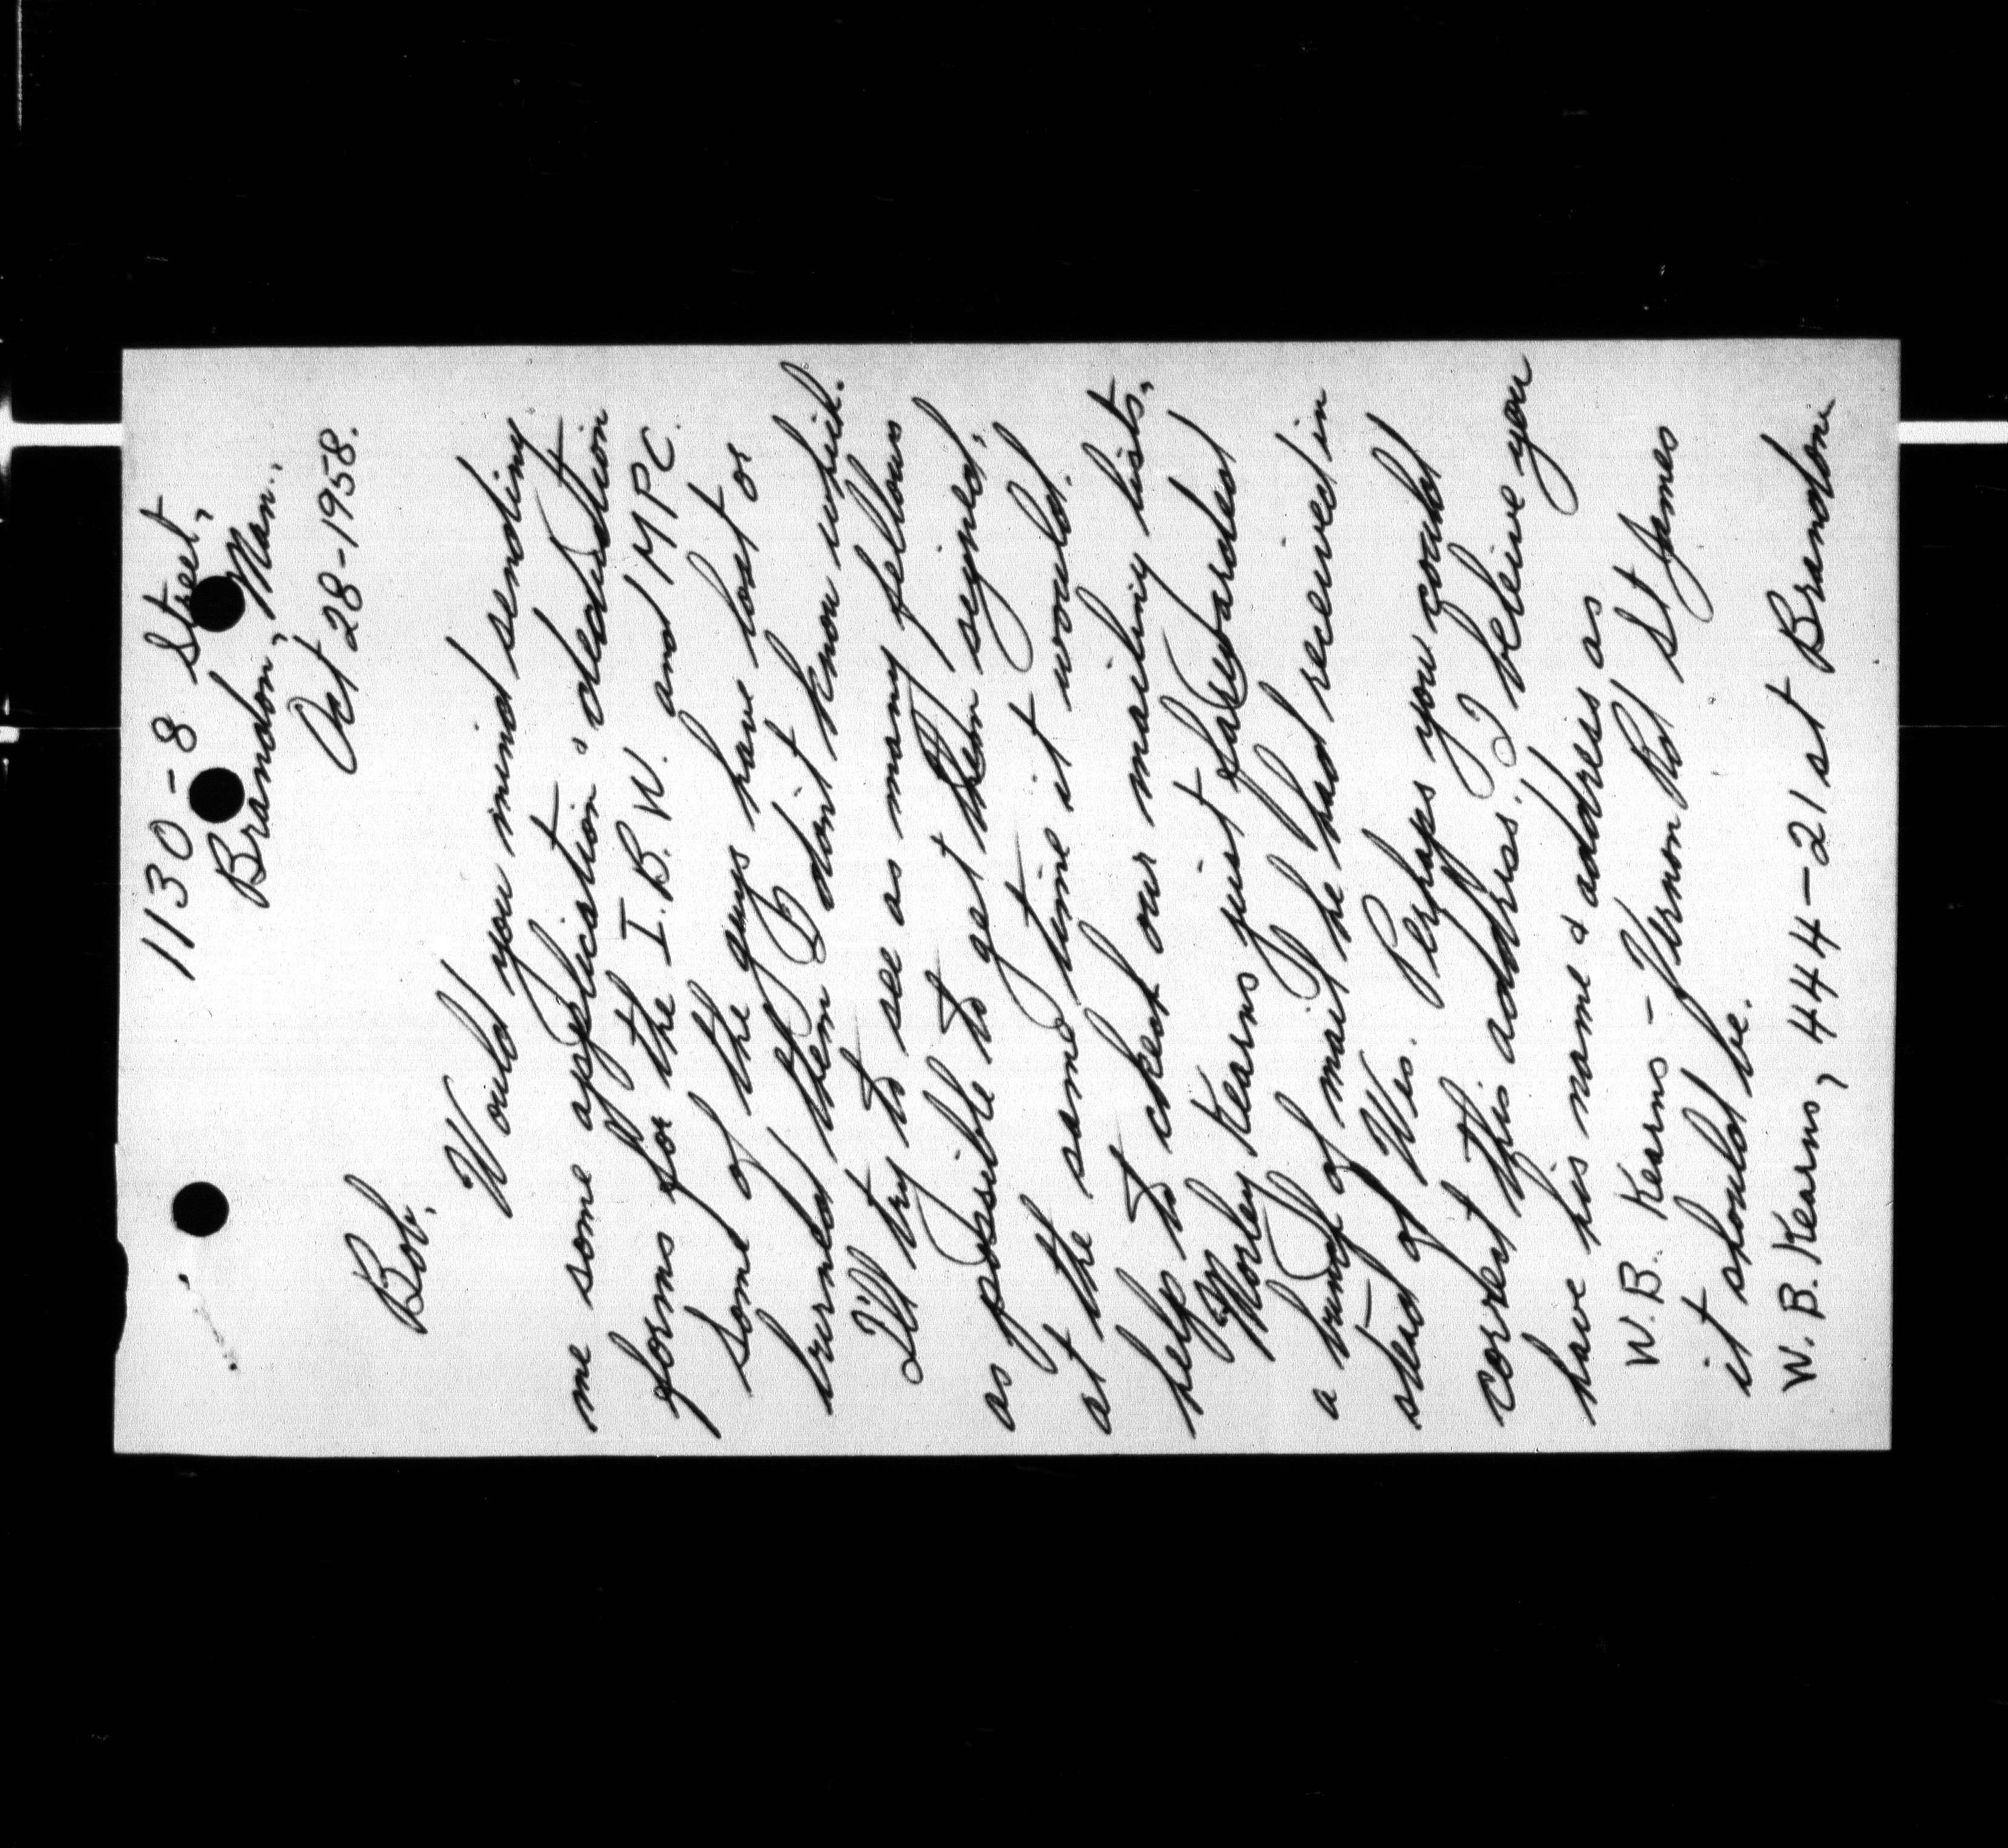 1130-8 Street,
Brandon, Man.,
Oct 28-1958.
Bob,
Would you mind sending
me some application & deduction
forms for the I.B.W. and MPC.
Some of the guys have lost or
burned them & I dont know which.
I'll try to see as many fellows
as possible to get them signed,
at the same time it would
help to check our mailing lists,
Morley Kearns just forwarded
a bunch of mail he had received in
stead of Wes. Perhaps you could
correct this address. I beleive you
have his name & address as
W.B. Kearns - Vernon Rd St James
it should be.
W.B. Kearns, 444-21 st Brandon